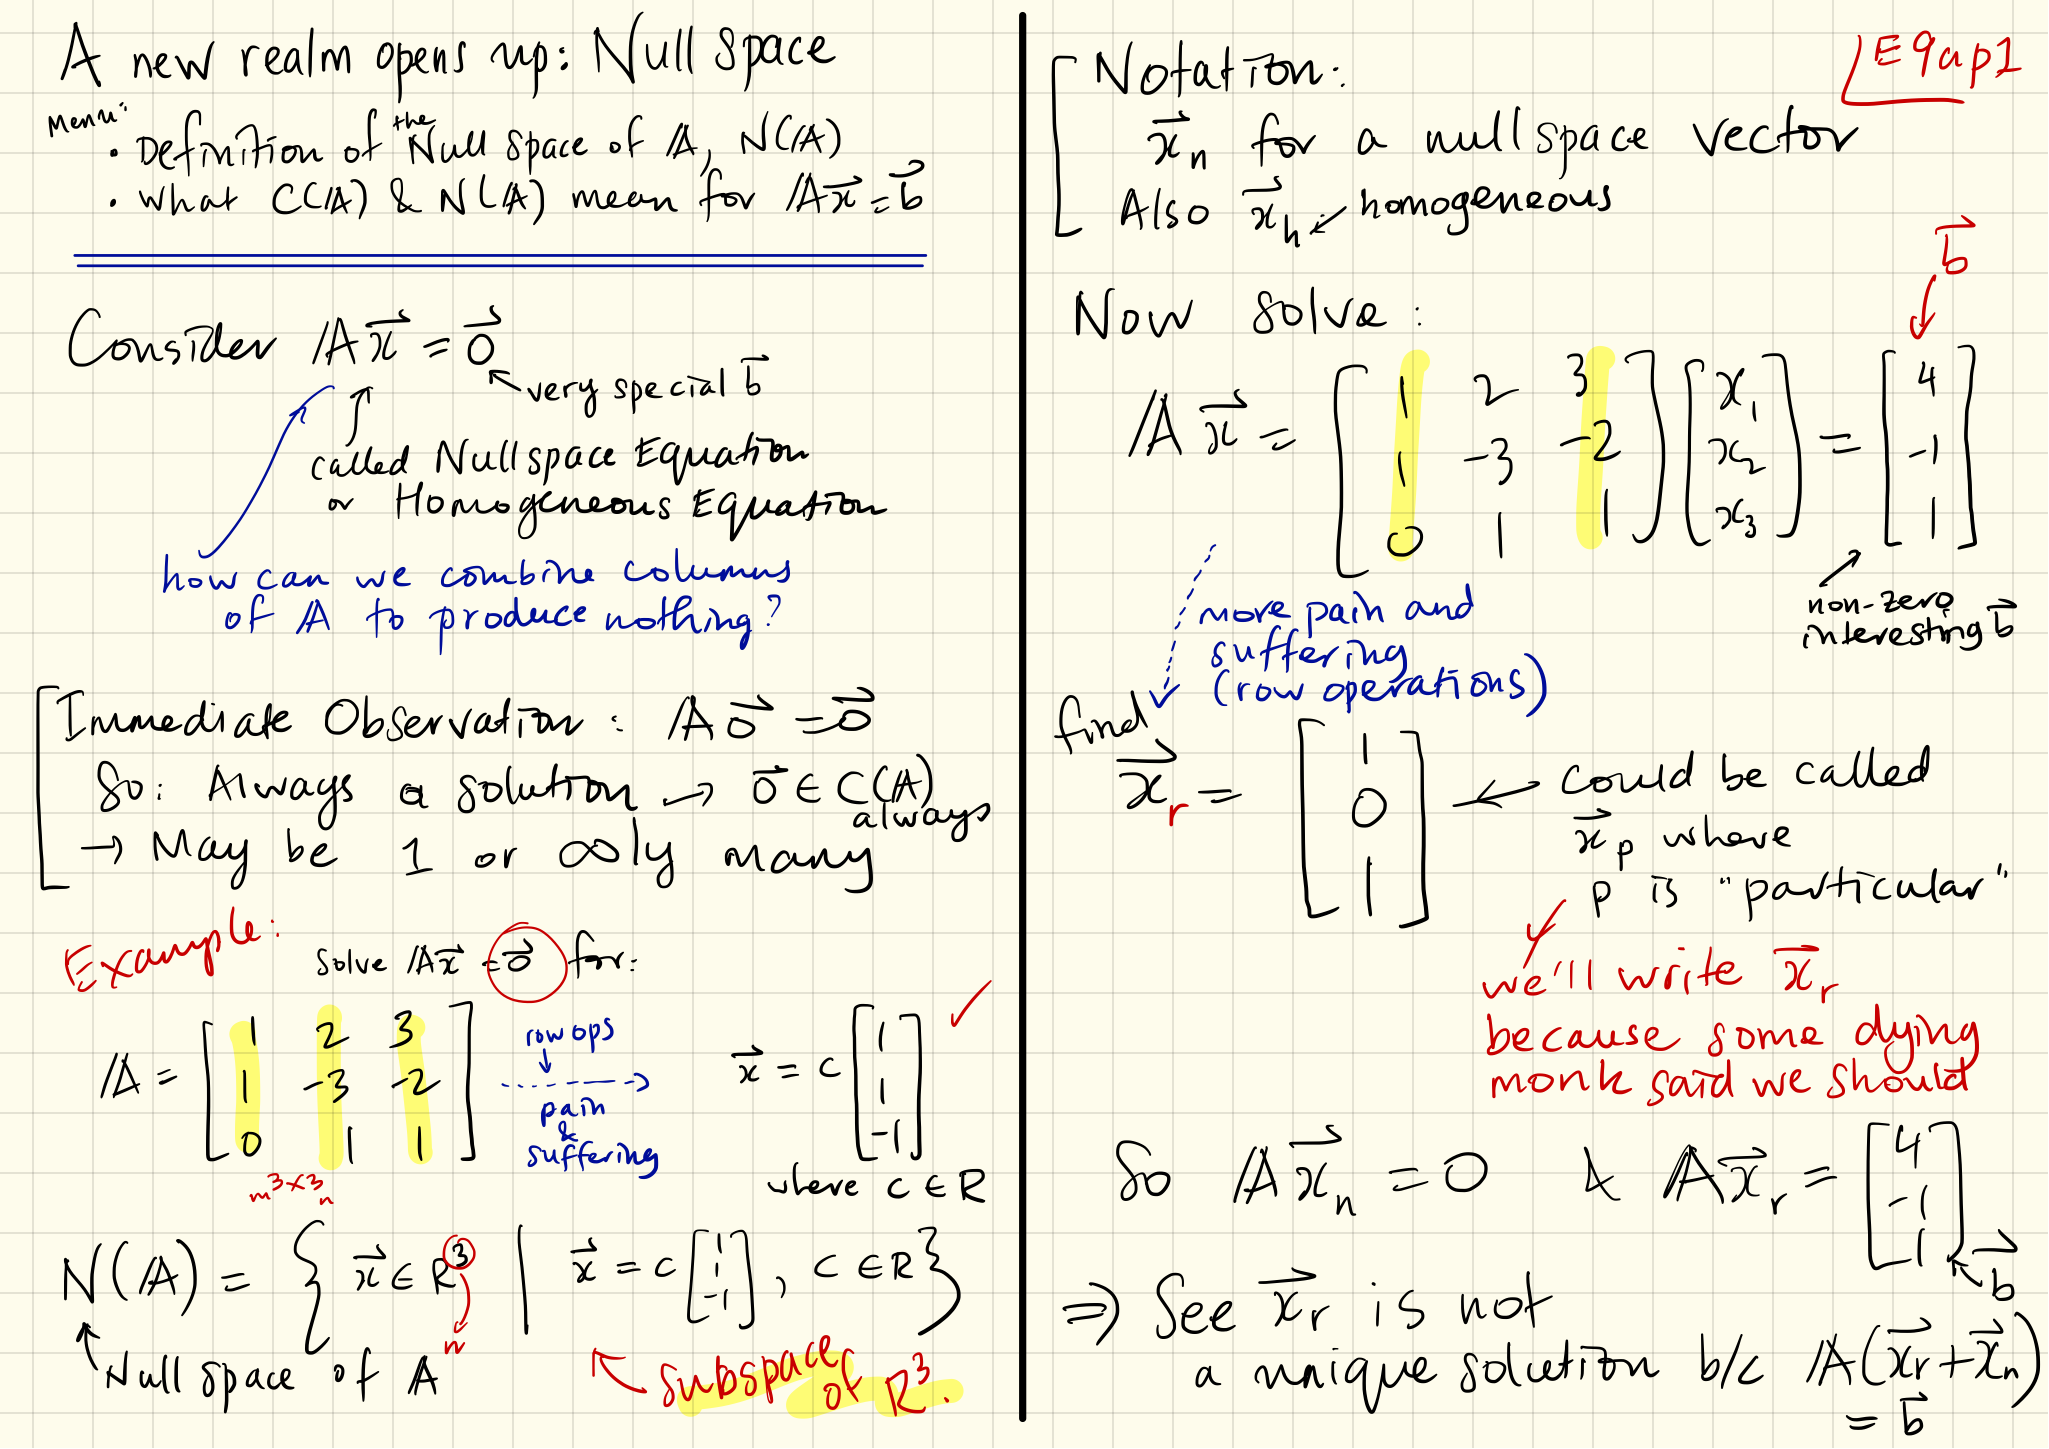 A new realm opens up: Null Space
Menu:
• Definition of the Null Space of A, N(A)
• What C(A) & N(A) mean for Ax⃗ = b⃗
Consider Ax⃗ = 0⃗
very special b⃗
called Nullspace Equation
or Homogeneous Equation
how can we combine columns
of A to produce nothing?
Immediate Observation: A0⃗ = 0⃗
So: Always a solution → 0⃗ ∈ C(A)
always
→ May be 1 or ∞ly many
Example:
Solve Ax⃗ = 0⃗ for:
A = [1 2 3
1 -3 -2
0 1 1]
m 3×3 n
row ops
pain
&
suffering
x⃗ = c [1
1
-1]
where c ∈ R
N(A) = { x⃗ ∈ R³ | x⃗ = c [1 1 -1], c ∈ R }
n
Null space of A
subspace
of R³.
E9ap1
Notation:
x⃗n for a nullspace vector
Also x⃗h homogeneous
Now solve:
b⃗
Ax⃗ = [1 2 3
1 -3 -2
0 1 1] [x₁
x₂
x₃] = [4
-1
1]
non-zero
interesting b⃗
more pain and
suffering
(row operations)
find
x⃗r = [1
0
1]
could be called
x⃗p where
p is "particular"
we'll write x⃗r
because some dying
monk said we should
So Ax⃗n = 0 & Ax⃗r = [4
-1
1]
b⃗
⇒ See x⃗r is not
a unique solution b/c A(x⃗r + x⃗n)
= b⃗